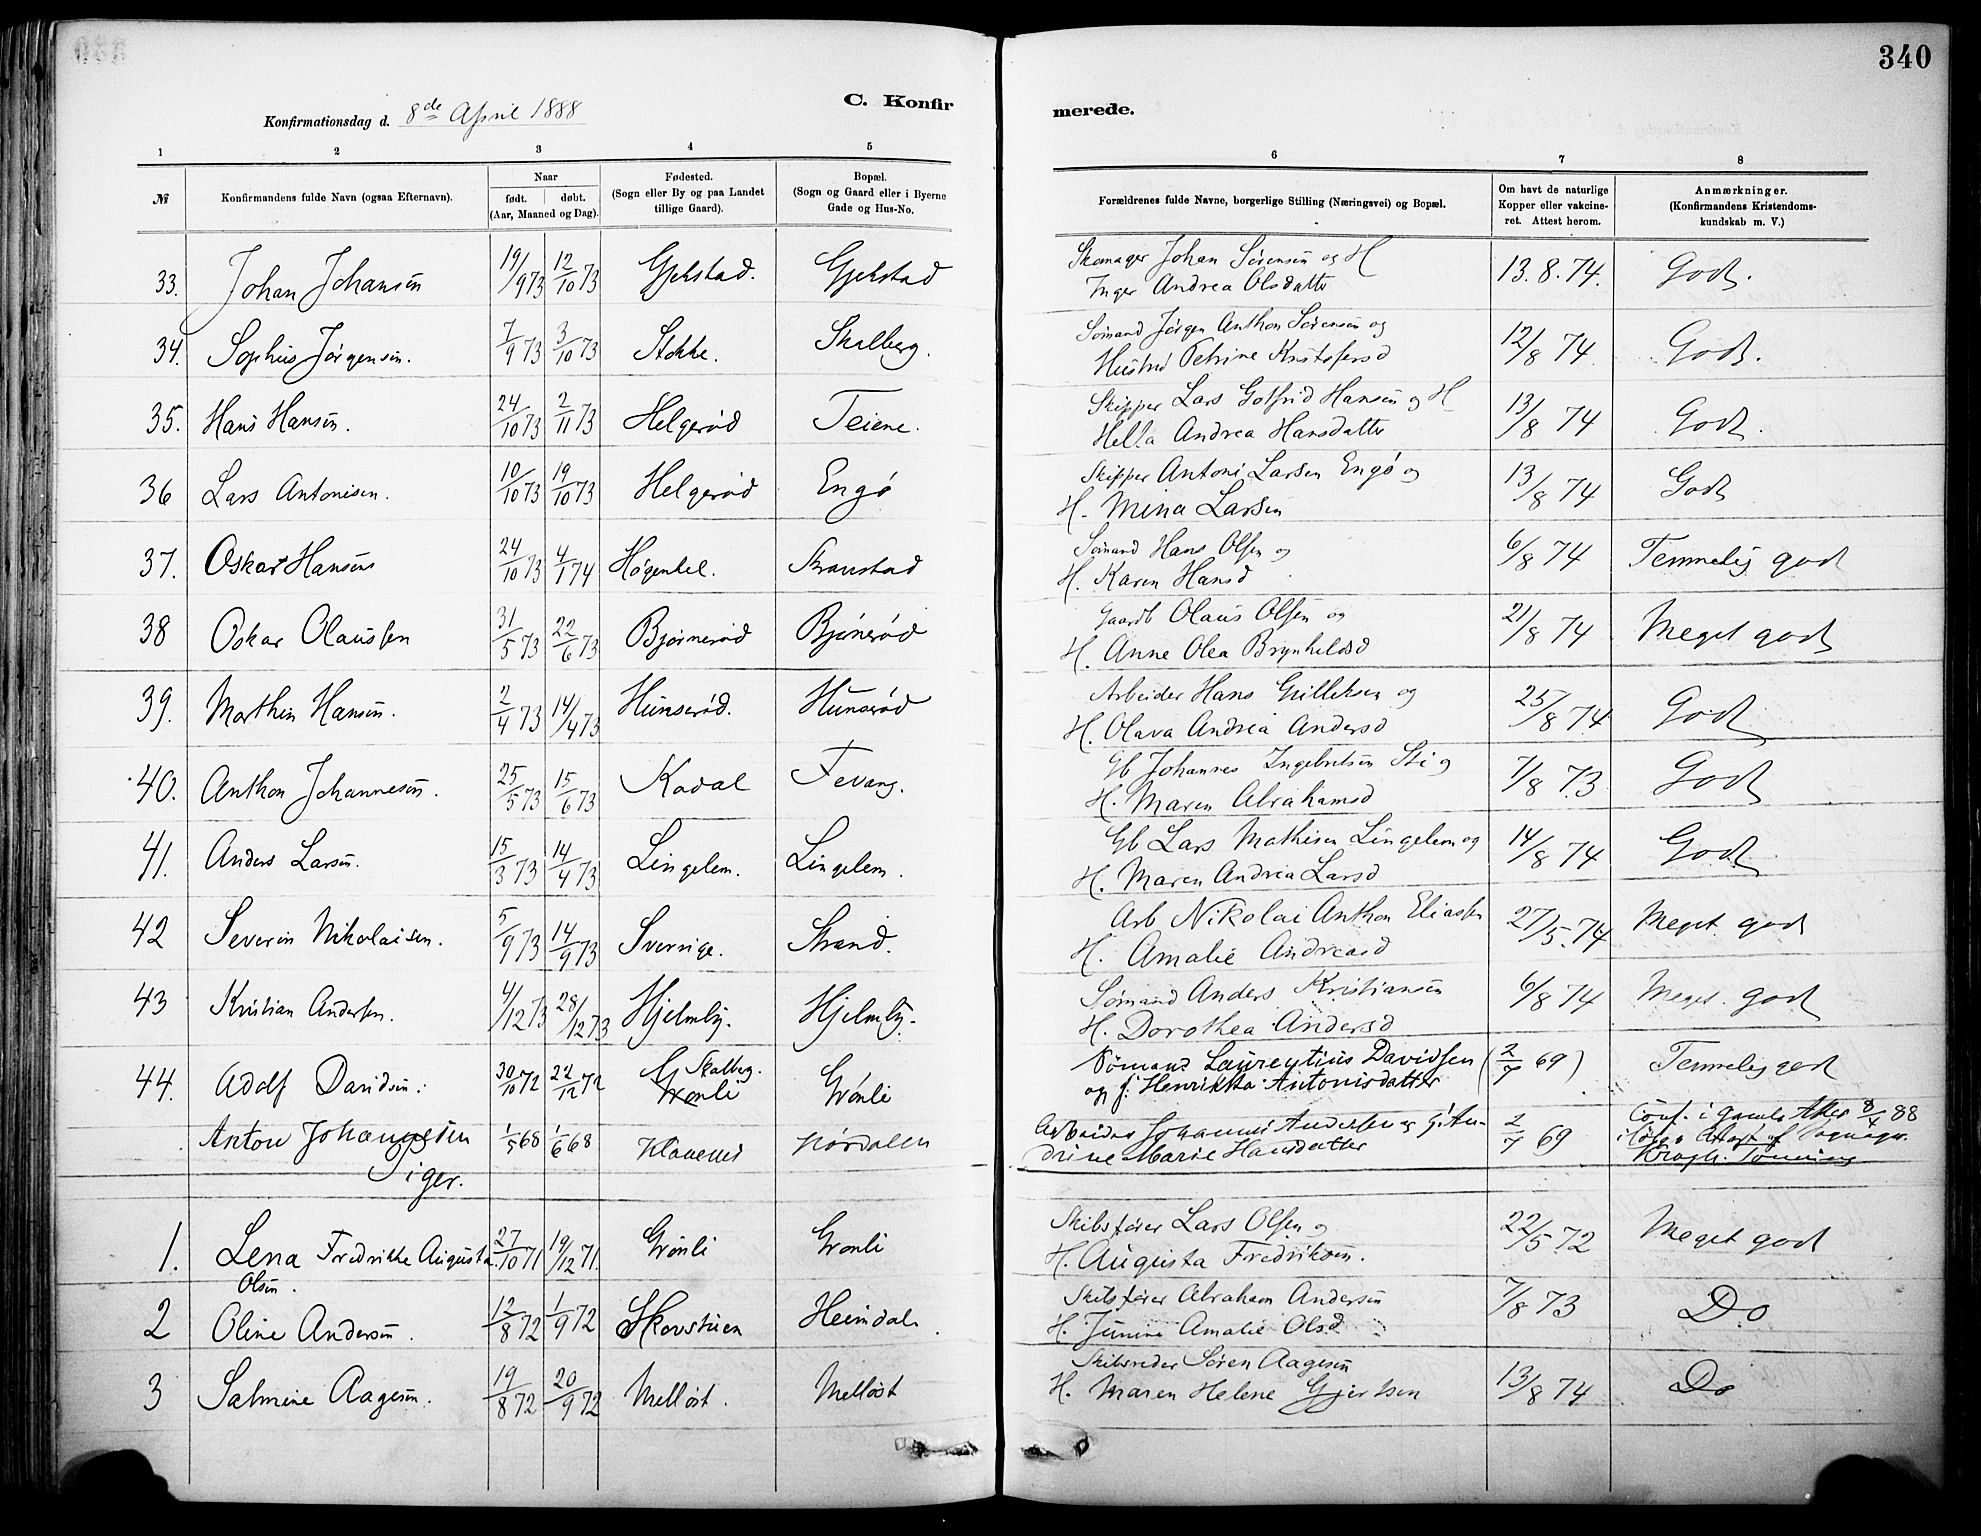 340
C. Konfir merede.
Konfirmationsdag d. 8de April 1888
1 2 3 4 5 6 7 8
№ Konfirmandens fulde Navn (ogsaa Efternavn). Naar født. døbt. (Aar, Maaned og Dag). Fødested. (Sogn eller By og paa Landet tillige Gaard). Bopæl. (Sogn og Gaard eller i Byerne Gade og Hus-No. Forældrenes fulde Navne, borgerlige Stilling (Næringsvei) og Bopæl. Om havt de naturlige Kopper eller vakcineret. Attest herom. Anmærkninger. (Konfirmandens Kristendomskundskab m. V.)
33. Johan Johansen 19/9 73 12/10 73 Gjekstad. Gjekstad Skomager Johan Sørensen og H Inger Andrea Olsdatter 13.8.74. God.
34. Sophus Jørgensen. 7/9 73 3/10 73 Stokke. Skalberg. Sømand Jørgen Anthon Sørensen og Hustru Petrine Kristofersd 12/8 74 God.
35. Hans Hansen. 24/10 73 2/11 73 Helgerød Teiene. Skipper Lars Gotfrid Hansen og H Hella Andrea Hansdatter 13/8 74 God.
36 Lars Antonisen. 10/10 73 19/10 73 Helgerød Engø Skipper Antoni Larsen Engø og H. Mina Larsen 13/8 74 God
37. Oskar Hansens 24/10 73 4/1 74 Høgenhel. Skraustad Sømand Hans Olsen og H. Karen Hansd 6/8 74 Temmelig god
38 Oskar Olaussen 31/5 73 22/6 73 Bjørnerød Bjønerød Gaardb Olaus Olsen og H. Anne Olea Brynheldsd 21/8 74 Meget god
39. Marthin Hansen. 2/4 73 14/4 73 Hunserød. Hunserød Arbeider Hans Gulliksen og H. Olava Andrea Andersd 25/8 74 God
40. Anthon Johannesen. 25/5 73 15/6 73 Kodal Fevang. Gb Johannes Ingebretsen Sti og H. Maren Abrahamsd 7/8 73 God
41. Anders Larsen. 15/3 73 14/4 73 Lingelem. Lingelem. Gb Lars Mathisen Lingelem og H. Maren Andrea Larsd 14/8 74 God
42 Severin Nikolaisen. 5/9 73 14/9 73 Sverrige. Strand. Arb Nikolai Anthon Eliassen H. Amalie Andreasd 27/5. 74 Meget god
43 Kristian Andersen. 4/12 73 28/12 73 Hjelmby. Hjelmby. Sømand Anders Kristiansen H. Dorothea Andersd 6/8 74 Meget god
44. Adolf Davidsen. 30/10 72 22/12 72 Skalberg. Grønli Grønli Sømand Laurentius Davidsen og Henrikka Antonisdatter (2/7 69) Temmelig god
Anton Johannesen 1/5 68 1/6 68 Klavenes Nordalen Arbeider Johannes Andersen og G. Andrine Marie Hansdatter 2/7 69 Conf. i gamle Aker 8/4 88
Piger.
1. Lena Fredrikke Augusta Olsen. 27/10 71 19/12 71. Grønli Grønli Skibsfører Lars Olsen og H. Augusta Fredriksen. 22/5 72 Meget god
2 Oline Andersen. 12/8 72 1/9 72 Skovstuen Heimdal. Skibsfører Abraham Andersen H. Junine Amalie Olsd 7/8 73 Do
3 Salmine Aagesen. 19/8 72 20/9 72 Melløst. Melløst Skibsreder Søren Aagesen H. Maren Helene Gjertsen 13/8 74 Do